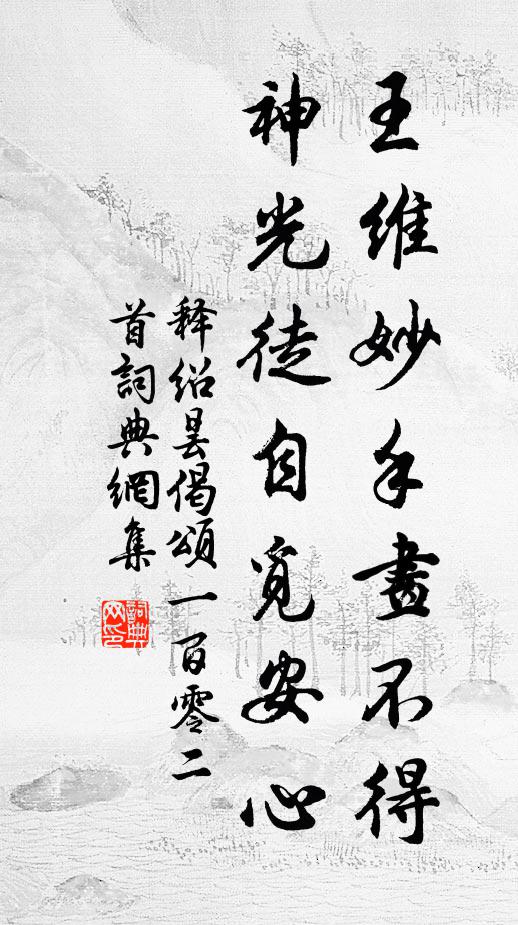 王维妙手畫不得
神光徒自觅安心
释绍昙偈頌一百零二
首詞典網集
詞典
网印